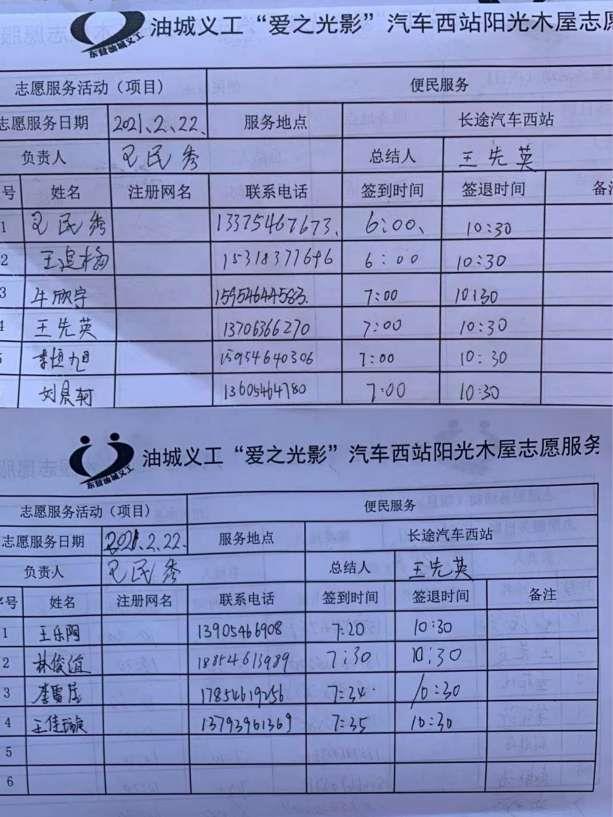 东营油城义工 油城义工“爱之光影”汽车西站阳光木屋志愿
志愿服务活动(项目) 便民服务
志愿服务日期 2021.2.22. 服务地点 长途汽车西站
负责人 民秀 总结人 王先英
号 姓名 注册网名 联系电话 签到时间 签退时间 备注
1 民秀 13375467673. 6:00 10:30
2 15318377646 6:00 10:30
3 牛欣宇 15954644583. 7:00 10:30
4 王先英 13706366270 7:00 10:30
5 15954640306 7:00 10:30
13605464780 7:00 10:30
东营油城义工 油城义工“爱之光影”汽车西站阳光木屋志愿服务
志愿服务活动(项目) 便民服务
志愿服务日期 2021.2.22. 服务地点 长途汽车西站
负责人 民秀 总结人 王先英
序号 姓名 注册网名 联系电话 签到时间 签退时间 备注
1 王乐陶 13905466908 7:20 10:30
2 林俊谊 18854613989 7:30 10:30
3 7:34 10:30
4 13793961369 7:35 10:30
5
6